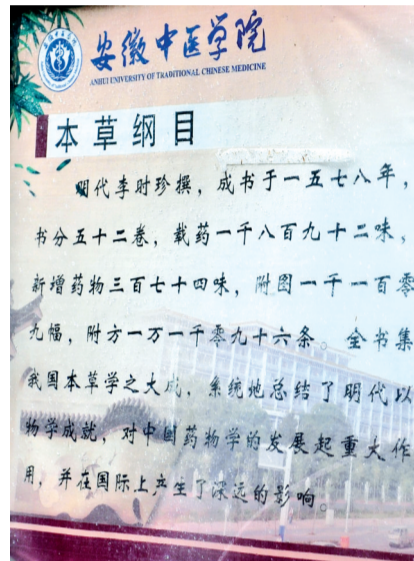 安徽中医学院
ANHUI UNIVERSITY OF TRADITIONAL CHINESE MEDICINE
本草纲目
明代李时珍撰，成书于一五七八年，
书分五十二卷，载药一千八百九十二味，
新增药物三百七十四味，附图一千一百零
九幅，附方一万一千零九十六条。全书集
我国本草学之大成，系统地总结了明代以
物学成就，对中国药物学的发展起重大作
用，并在国际上产生了深远的影响。